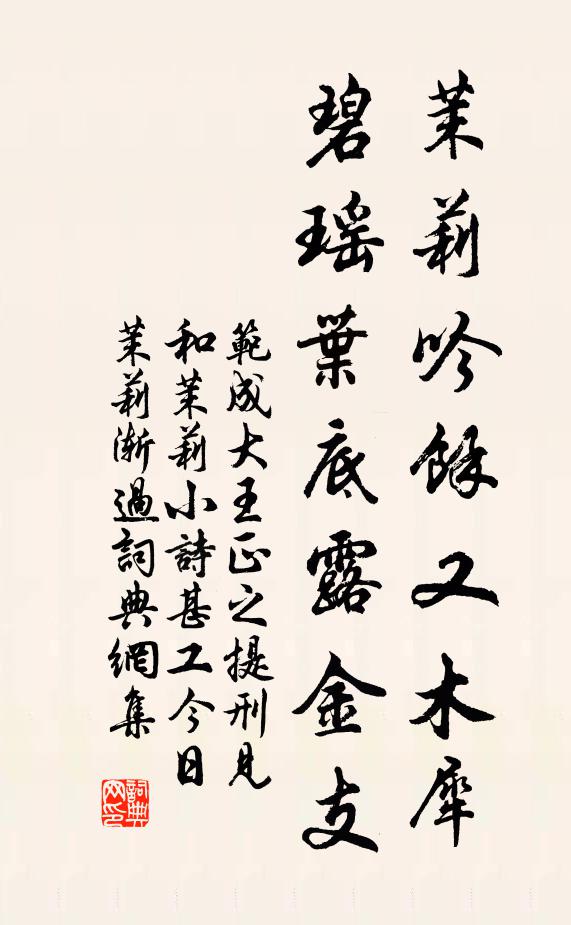 茉莉吟餘又木犀
碧瑶葉底露金支
範成大王正之提刑見
和茉莉小詩甚工今日
茉莉漸過詞典網集
詞典网印